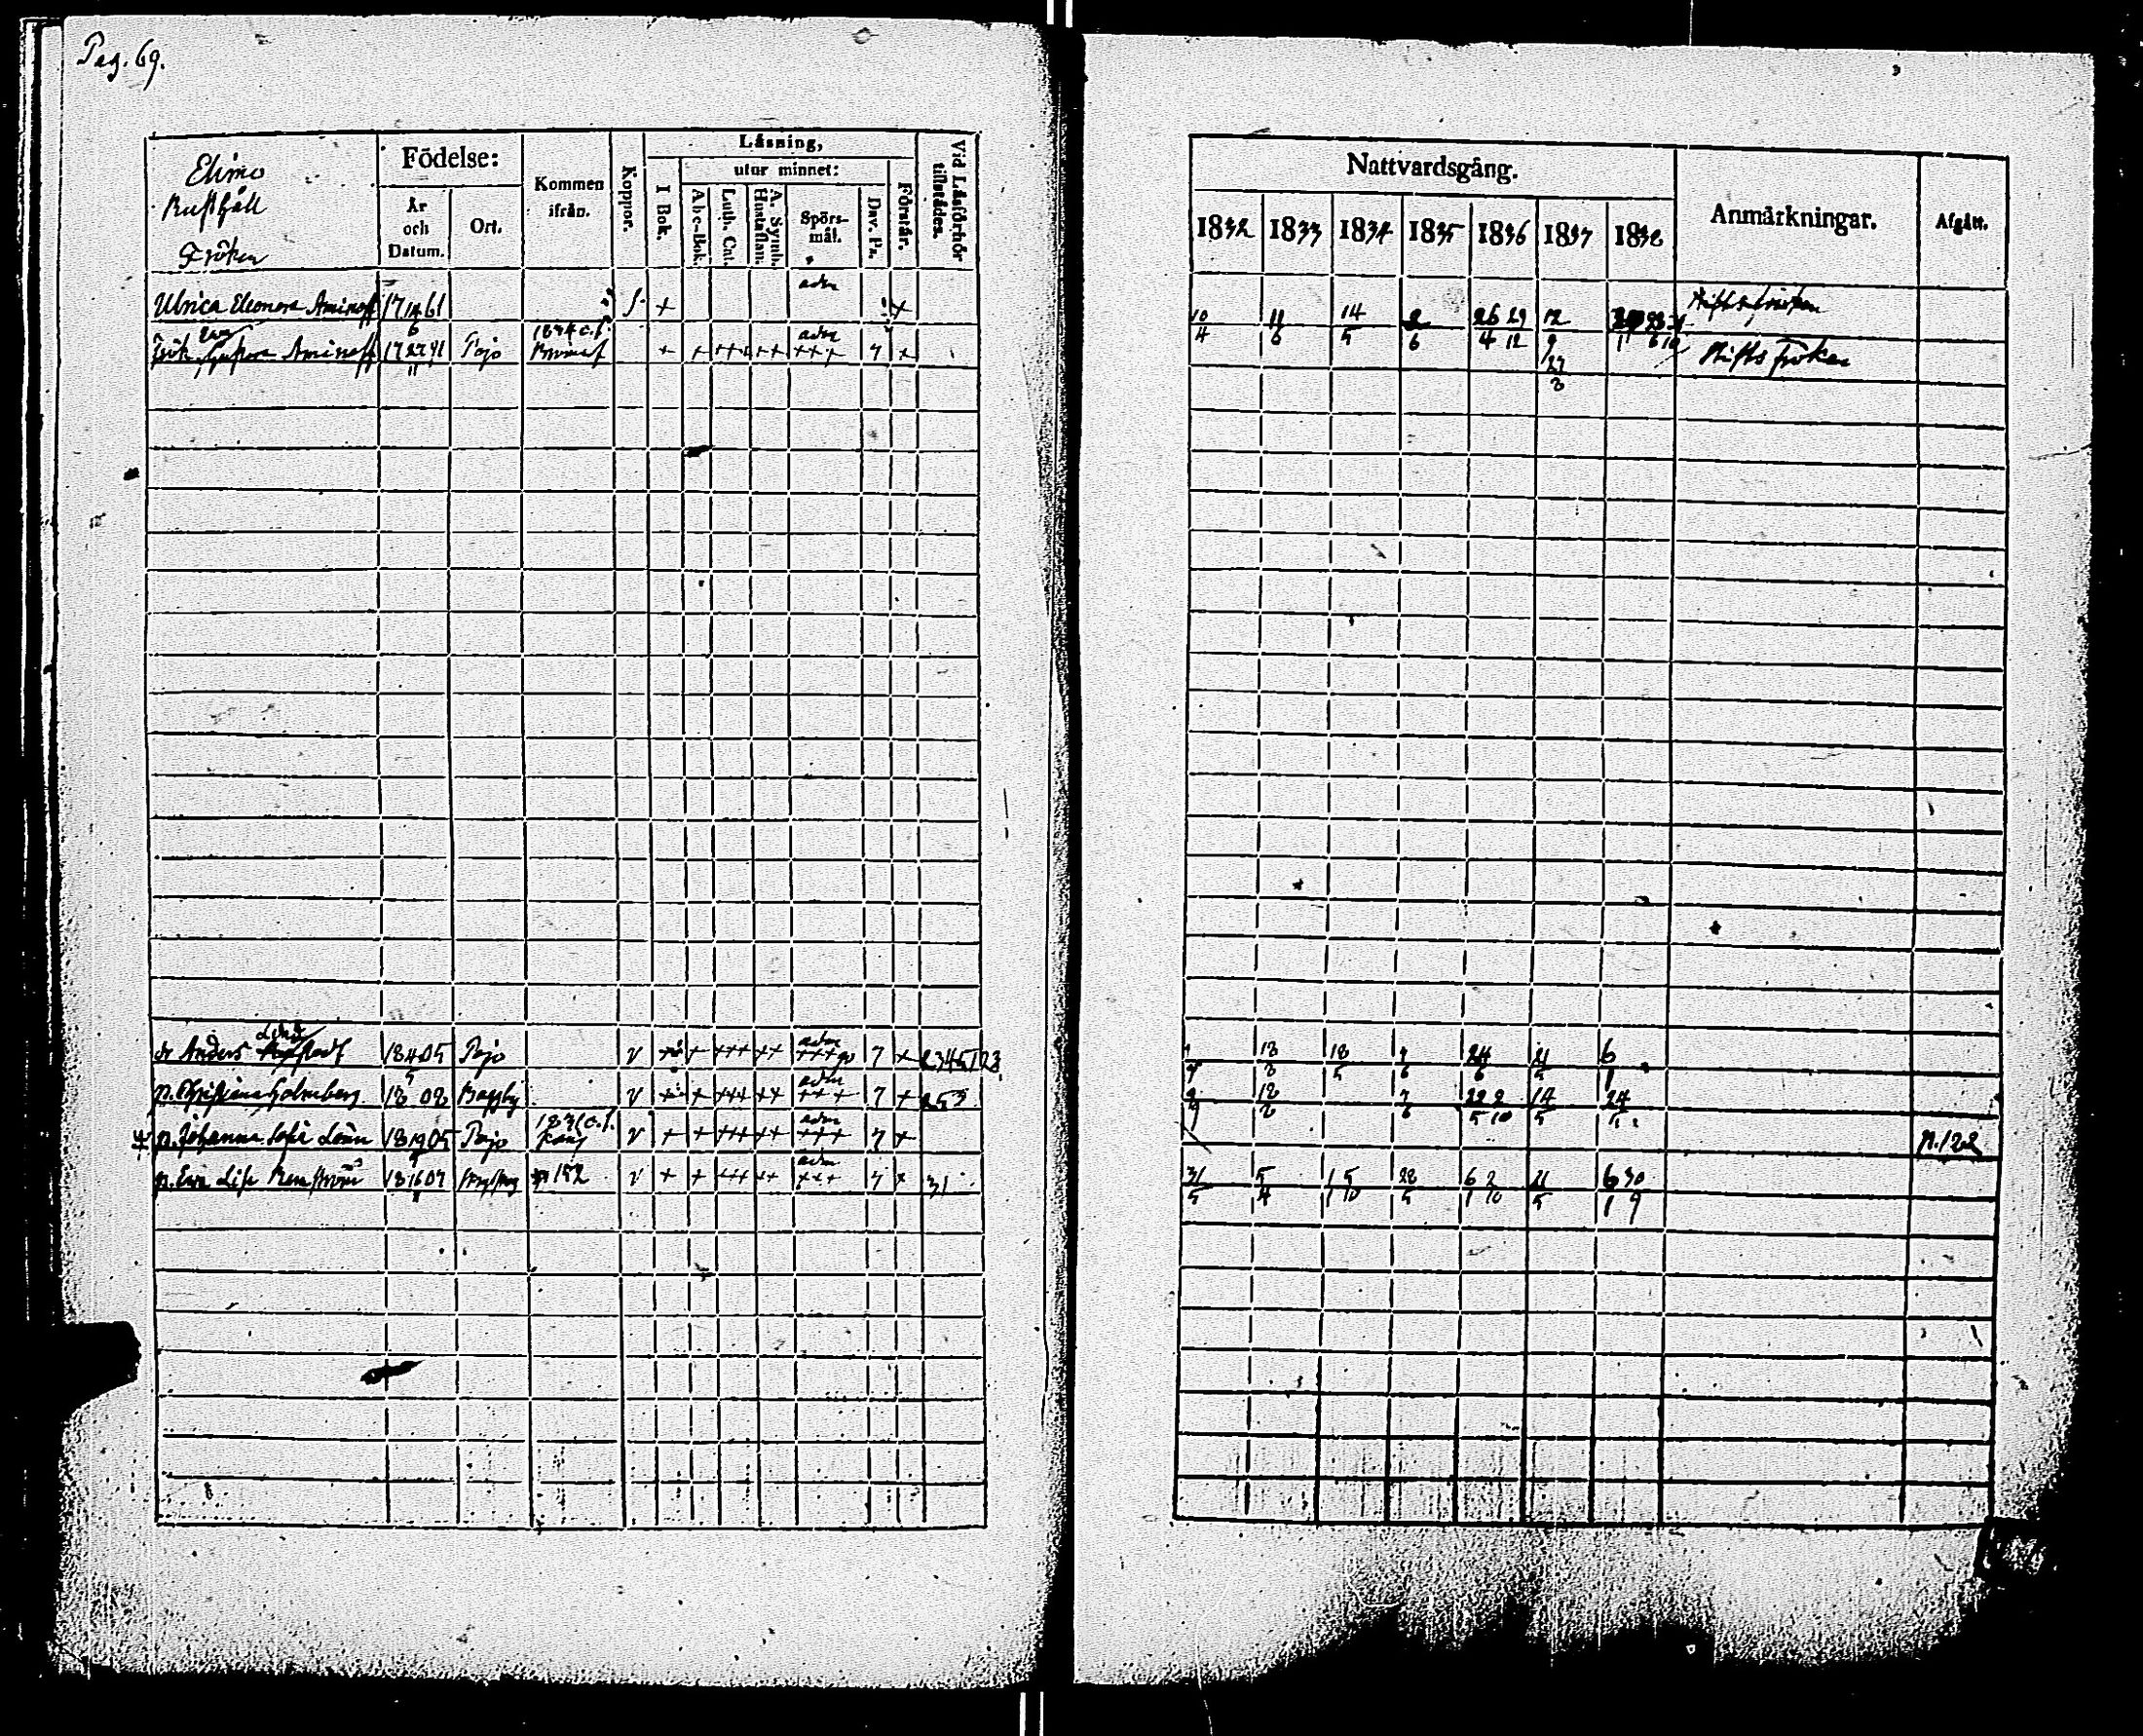 Pag. 69.
Elimo
Rusthåll
Fröken
Födelse:
År och Datum.
Ort.
Kommen ifrån.
Koppor.
Läsning,
I Bok.
utur minnet:
Abc-Bok.
Luth. Cat.
A. Symb. Hustaflan.
Spörsmål.
Dav. Ps.
Förstår.
Vid Läsförhör tillstädes.
Nattvardsgång.
1832 1833 1834 1835 1836 1837 1838
Anmärkningar.
Afgått.
adm
Ulrica Eleonora Aminoff 17 14/6 61 + + 10/4 11/6 14/5 2/6 26/4 29/12 12/9 Stiftsfröken
1834 c.f. adm
Frök Eva Gustava Aminoff 17 22/11 91 Pojo Bromarf + + +++ ++ +++ 7 + 27/8 Stifts fröken
Lind adm
dr Anders 18 4/5 05 Pojo v + + +++ ++ +++ 7 + 2345123 18/8 18/5 7/6 24/6 21/5 6/1
adm
p. Christina Holmberg 18 08 v + + +++ ++ +++ 7 + 253 18/8 7/6 22/5 2/10 14/5 24
1831 c.f. adm
p. Johanna Sofia Lönn 18 19 05 Pojo v + + +++ ++ +++ 7 + p. 122
adm
p. Eva Lisa Renström 18 16 07 p 152 v + + +++ ++ +++ 7 + 31 31/5 5/4 1/1 5/10 28/5 6/1 2/10 21/5 6/1 30/9